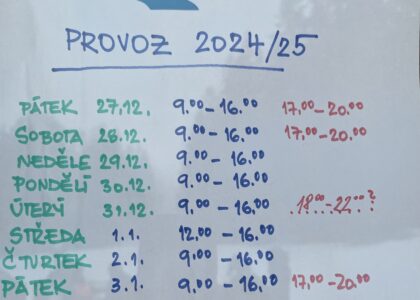 PROVOZ 2024/25
PÁTEK 27.12. 9.00-16.00 17.00-20.00
SOBOTA 28.12. 9.00-16.00 17.00-20.00
NEDĚLE 29.12. 9.00-16.00
PONDĚLÍ 30.12. 9.00-16.00
ÚTERÝ 31.12. 9.00-16.00 18.00-22.00?
STŘEDA 1.1. 12.00-16.00
ČTVRTEK 2.1. 9.00-16.00
PÁTEK 3.1. 9.00-16.00 17.00-20.00